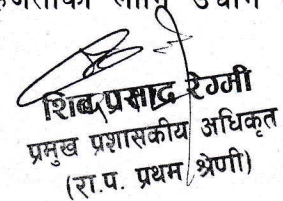 शिव प्रसाद रेग्मी
प्रमुख प्रशासकीय अधिकृत
(रा.प. प्रथम श्रेणी)